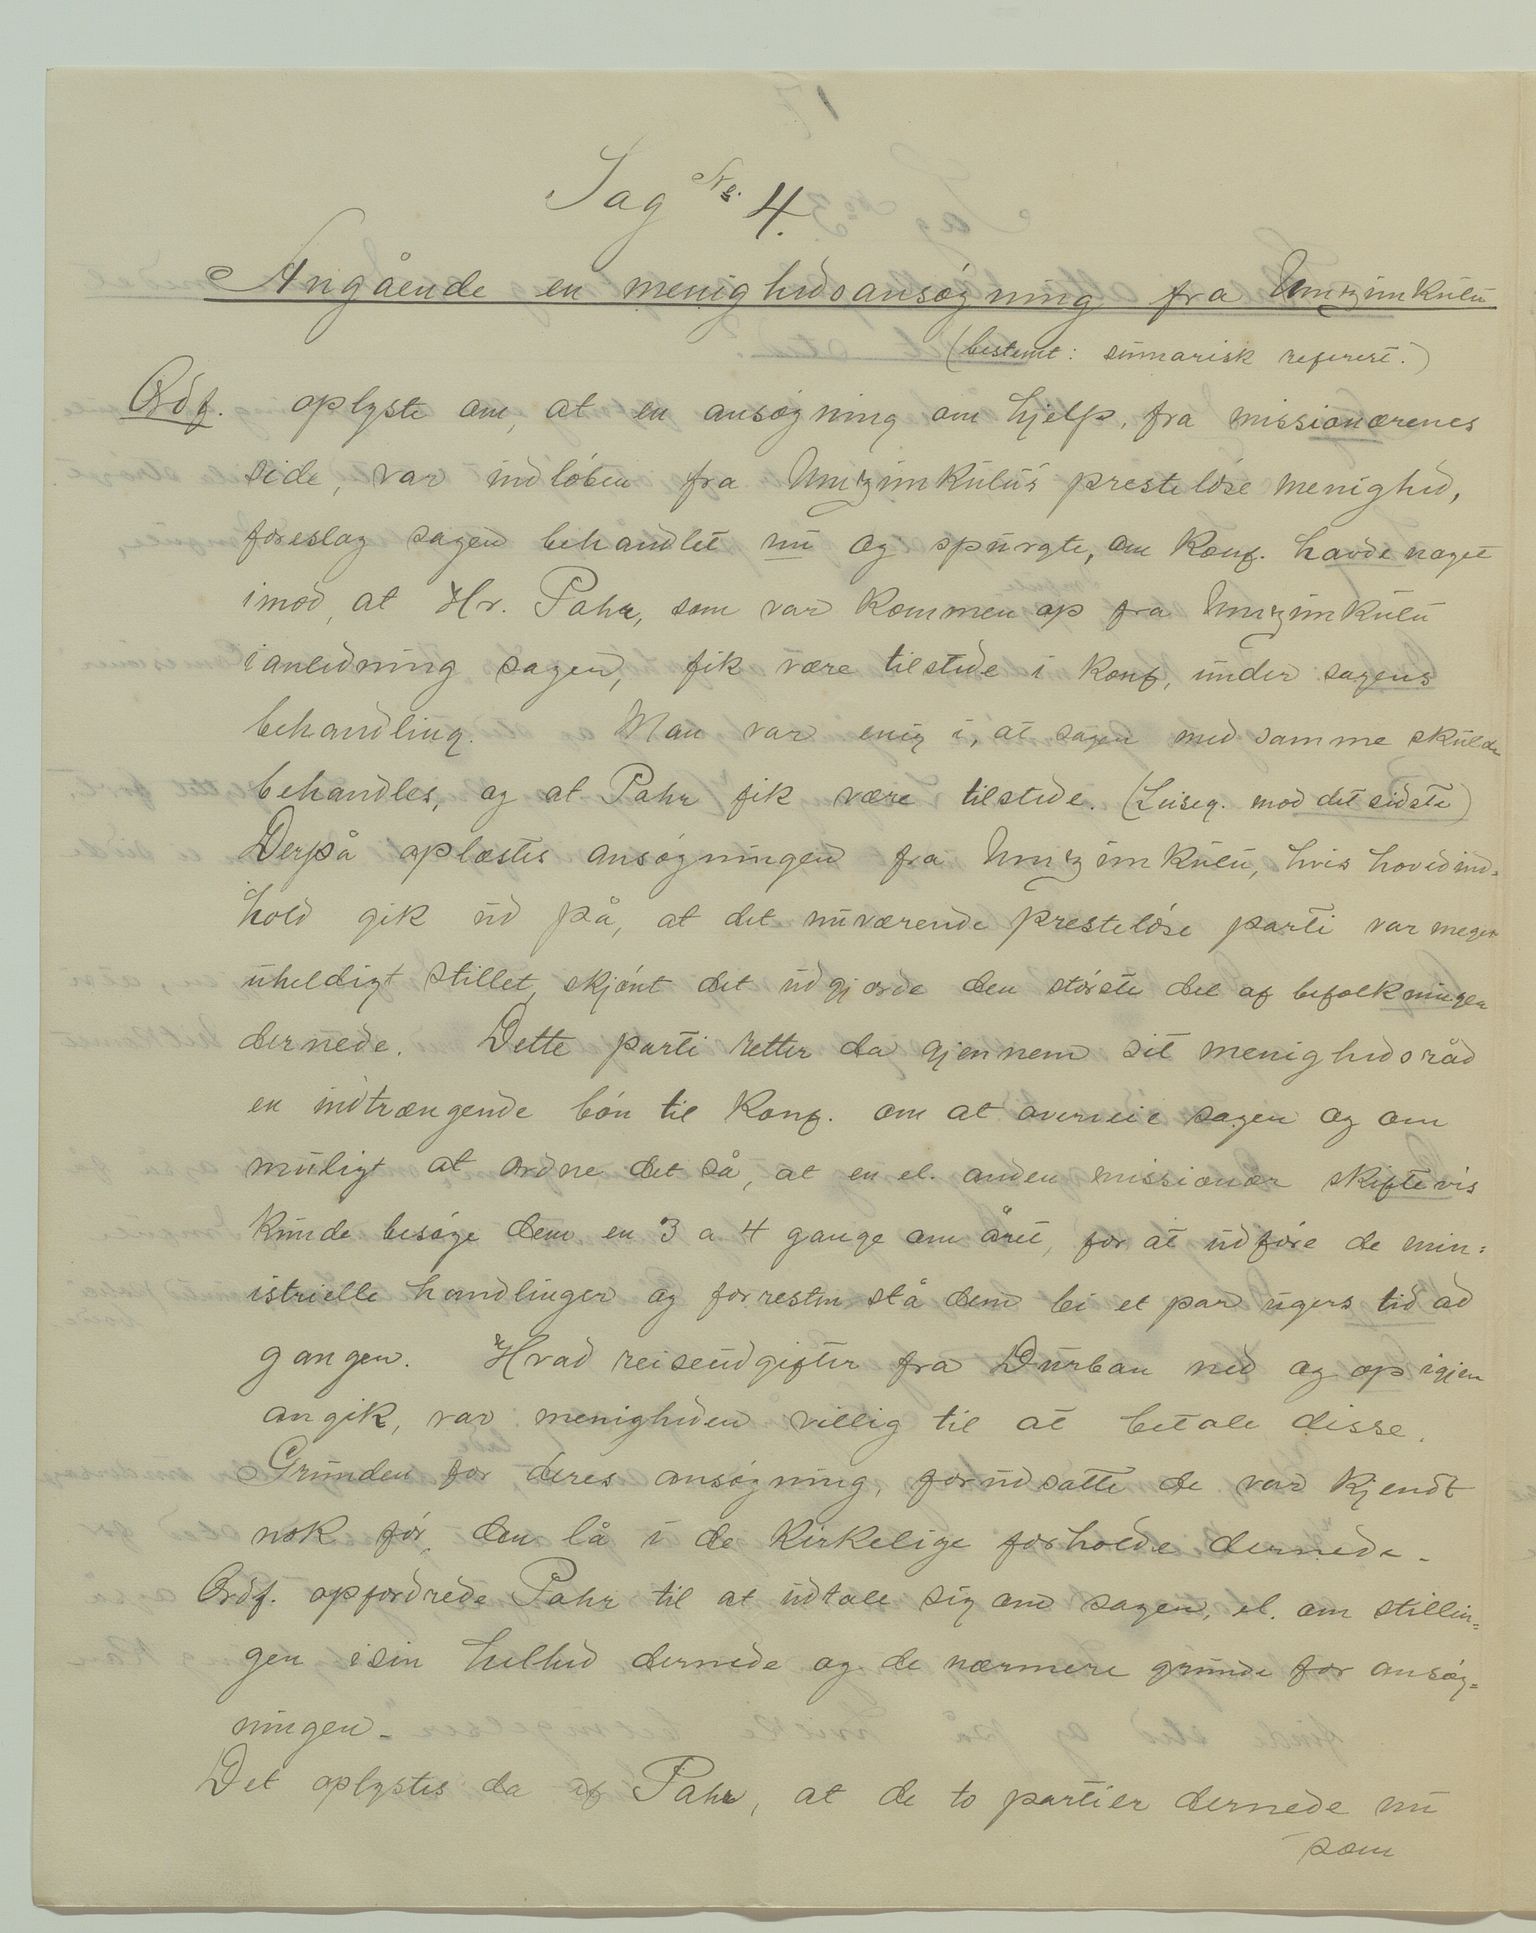 Sag No. 4.
Angående en menighedsansøgning fra Umzimkulu
(bestemt: sumarisk referert.)
Ordf. oplyste om, at en ansøgning om hjelp, fra missionærenes
side, var indløben fra Umzimkulu's presteløse menighed,
foreslog sagen behandlet nu og spurgte, om Konf. havde noget
imod, at Hr. Pahr, som var kommen op fra Umzimkulu
i anledning sagen, fik være tilstede i Konf. under sagens
behandling. Man var enig i, at sagen med samme skulde
behandles, og at Pahr fik være tilstede. (Leiseg. mod det sidste)
Derpå oplæstes ansøgningen fra Umzimkulu, hvis hovedind=
hold gik ud på, at det nuværende presteløse parti var meget
uheldigt stillet, skjønt det udgjorde den største del af befolkningen
dernede. Dette parti retter da gjennem sit menighedsråd
en indtrængende bøn til Konf. om at overveie sagen og om
muligt at ordne det så, at en el. anden missionær skiftevis
kunde besøge dem en 3 a 4 gange om året, for at udføre de min=
istrielle handlinger og forresten stå dem bi et par ugers tid ad
gangen. Hvad reiseudgifter fra Durban ned og op igjen
angik, var menigheden villig til at betale disse.
Grunden for deres ansøgning, forudsatte de var kjendt
nok før, den lå i de kirkelige forholde dernede.
Ordf. opfordrede Pahr til at udtale sig om sagen, el. om stillin=
gen i sin helhed dernede og de nærmere grunde for ansøg=
ningen.
Det oplystes da af Pahr, at de to partier dernede nu
som